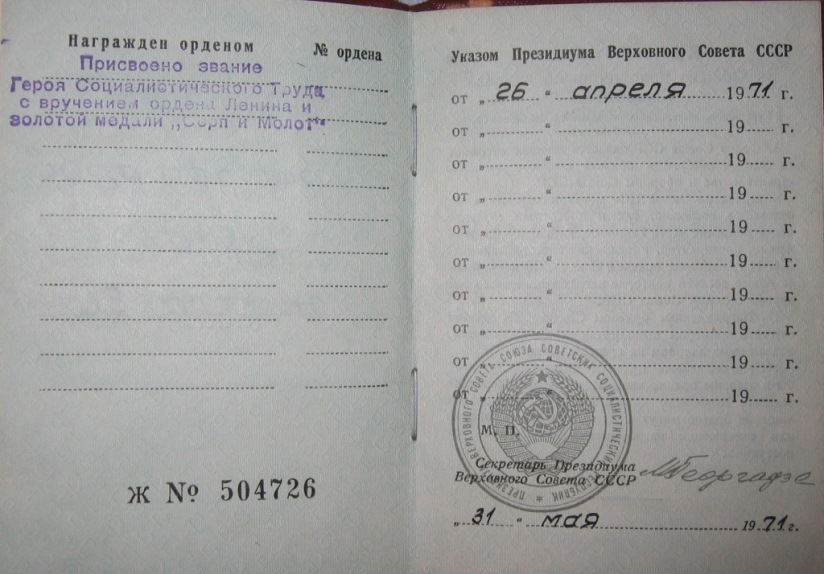 Награжден орденом № ордена
Присвоено звание
Героя Социалистического Труда
с вручением ордена Ленина и
золотой медали „Серп и Молот“
Ж № 504726
Указом Президиума Верховного Совета СССР
от „ 26 “ апреля 1971 г.
от „ “ 19 г.
от „ “ 19 г.
от „ “ 19 г.
от „ “ 19 г.
от „ “ 19 г.
от „ “ 19 г.
от „ “ 19 г.
от „ “ 19 г.
от „ “ 19 г.
ПРЕЗИДИУМ ВЕРХОВНОГО СОВЕТА СОЮЗА СОВЕТСКИХ СОЦИАЛИСТИЧЕСКИХ РЕСПУБЛИК
М. П.
Секретарь Президиума
Верховного Совета СССР МГеоргадзе
„ 31 “ мая 1971 г.